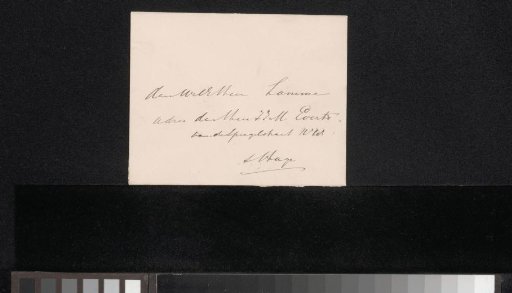 den WelEdHeer Lamme
adres den Heer J M Everts
van de Spiegelstraat
s Hage